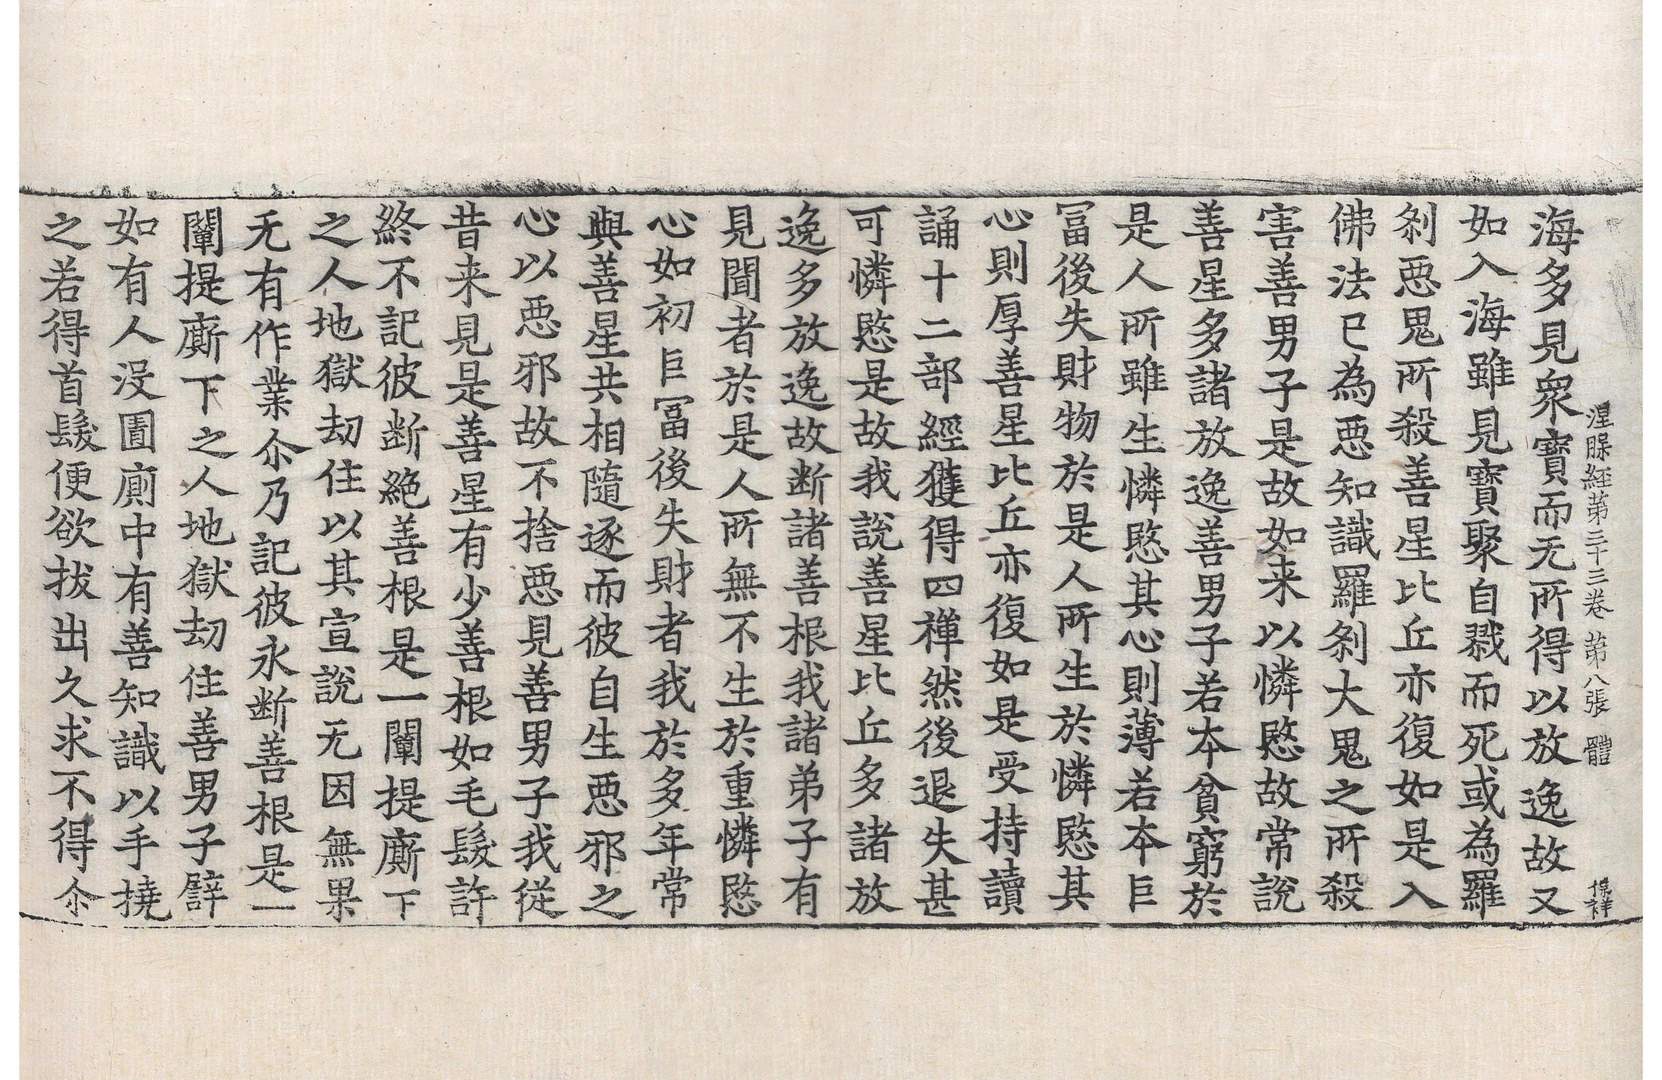 涅脵経苐三十三卷 苐八張 體 保祥
海多見衆寶而无所得以放逸故又
如入海雖見寶聚自戮而死或為羅
刹惡鬼所殺善星比丘亦復如是入
佛法已為惡知識羅刹大鬼之所殺
害善男子是故如来以憐愍故常說
善星多諸放逸善男子若本貧窮於
是人所雖生憐愍其心則薄若本巨
冨後失財物於是人所生於憐愍其
心則厚善星比丘亦復如是受持讀
誦十二部經獲得四禪然後退失甚
可憐愍是故我說善星比丘多諸放
逸多放逸故断諸善根我諸弟子有
見聞者於是人所無不生於重憐愍
心如初巨冨後失財者我於多年常
與善星共相隨逐而彼自生惡邪之
心以惡邪故不捨惡見善男子我従
昔来見是善星有少善根如毛髮許
終不記彼断絶善根是一闡提廝下
之人地獄劫住以其宣說无因無果
无有作業尒乃記彼永断善根是一
闡提廝下之人地獄劫住善男子譬
如有人没圊廁中有善知識以手撓
之若得首髮便欲拔出久求不得尒